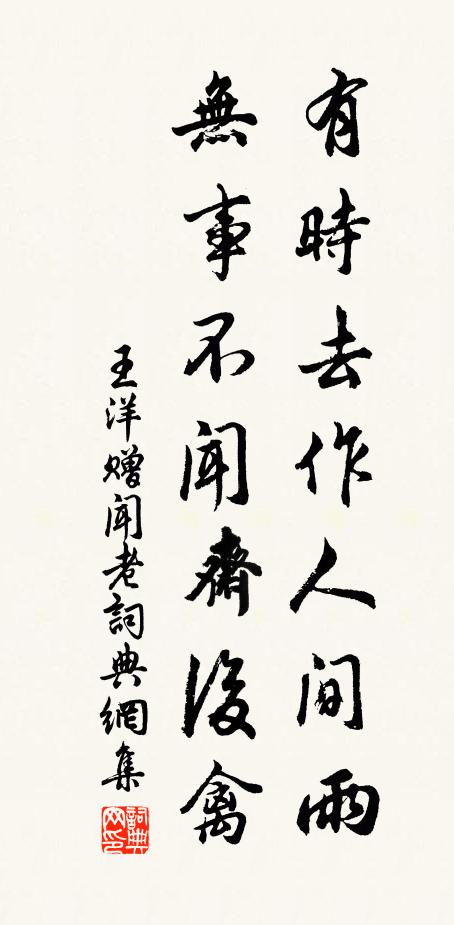 有時去作人間雨
無事不聞齋後禽
王洋贈聞老詞典網集
詞典網印